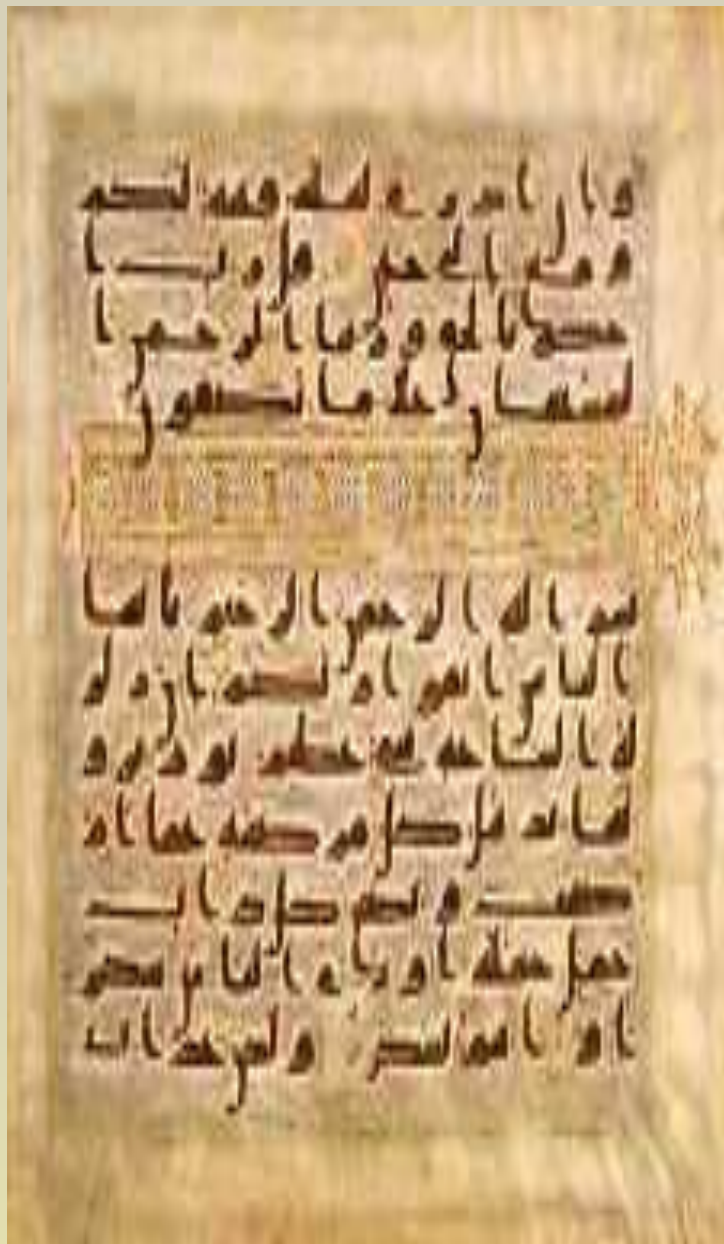 وان ادرى لعله فتنه لكم
ومتع الى حين قل رب ا
حكم بالحق وربنا الرحمن ا
لمستعان على ما تصفون
بسم الله الرحمن الرحيم يايها
الناس اتقوا ربكم ان زلز
له الساعه شى عظيم يوم ترو
نها تذهل كل مرضعه عما ار
ضعت وتضع كل ذات
حمل حملها وترى الناس سكر
ى وما هم بسكرى ولكن عذاب